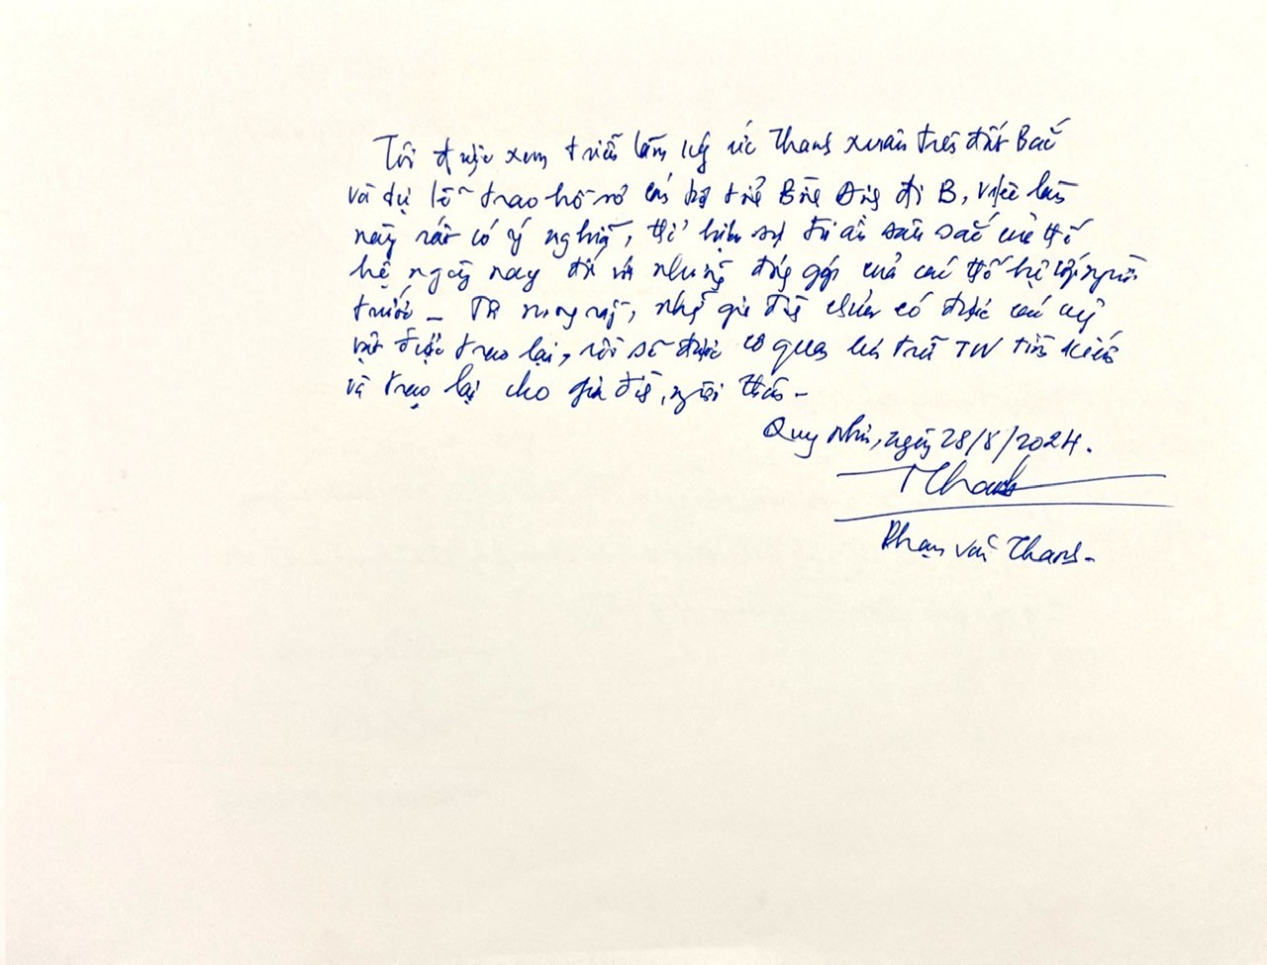 Tôi được xem triển lãm ký ức Thanh xuân trên đất Bắc
và dự lễ trao hồ sơ cán bộ tỉnh Bình Định đi B, việc làm
này rất có ý nghĩa, thể hiện sự tri ân sâu sắc của thế
hệ ngày nay đối với những đóng góp của các thế hệ người
trước - Tôi mong rằng, những gia đình chưa có được các kỷ
vật được trao lại, rồi sẽ được cơ quan lưu trữ TW tìm kiếm
và trao lại cho gia đình, người thân -
Quy Nhơn, ngày 28/8/2024.
Thanh
Phạm Văn Thanh -